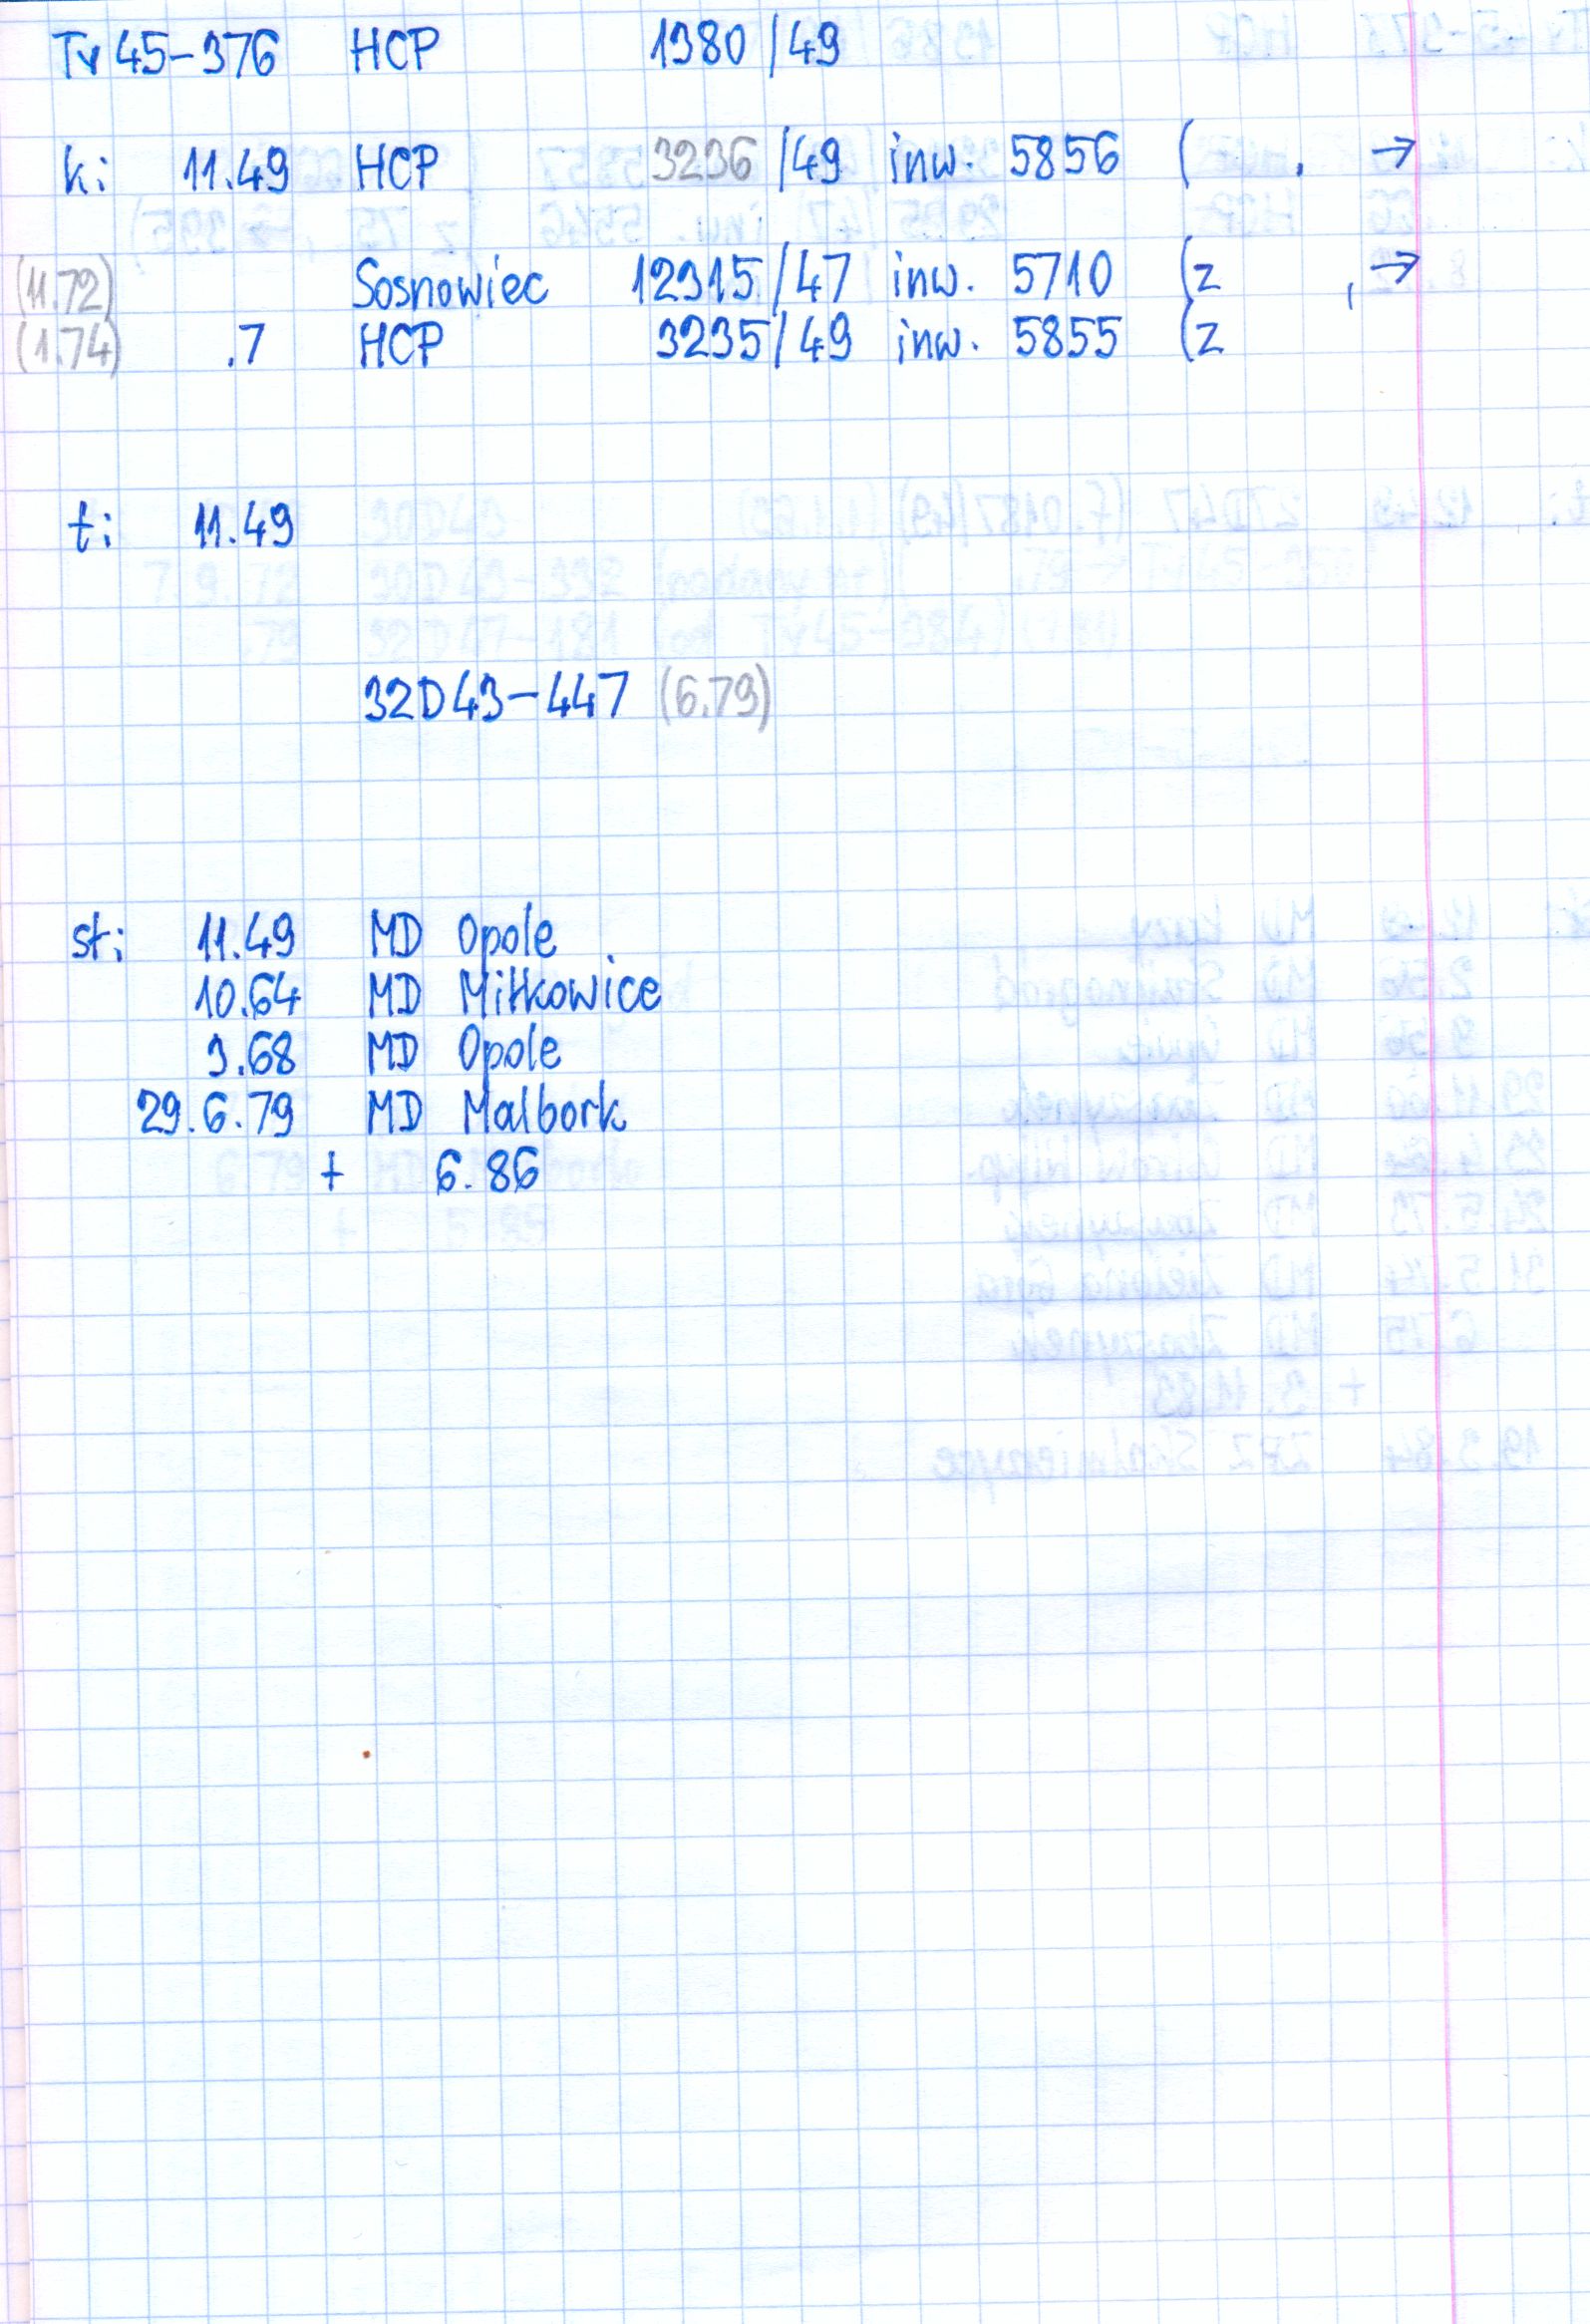 Ty45-376 HCP 1380/49
k: 11.49 HCP 3236/49 inw. 5856 ( , →
(11.72) Sosnowiec 12315/47 inw. 5710 (z , →
(1.74) .7 HCP 3235/49 inw. 5855 (z
t: 11.49
32D43-447 (6.79)
st: 11.49 MD Opole
10.64 MD Miłkowice
3.68 MD Opole
29.6.79 MD Malbork
+ 6.86